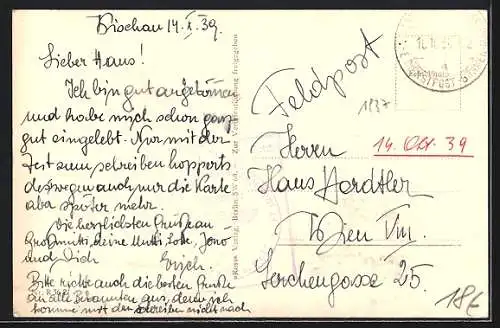 Bischau 14.X.39.
Lieber Haus!
Ich bin gut angekommen
und habe mich schon ganz
gut eingelebt. Nur mit der
Zeit zum schreiben hopperts
deswegen auch nur die Karte
aba später mehr.
Die herzlichsten Grüße an
Großmutti, deine Mutti, Lotte,
und Dich
Erich.
Bitte richte auch die besten Grüße
an alle Bekannten aus, denn ich
komme mit den schreiben nicht nach
Feldpost
1837
Herrn
14. Okt. 39
Hans Herdtler
Wien VIII.
Lerchengasse 25.
18€